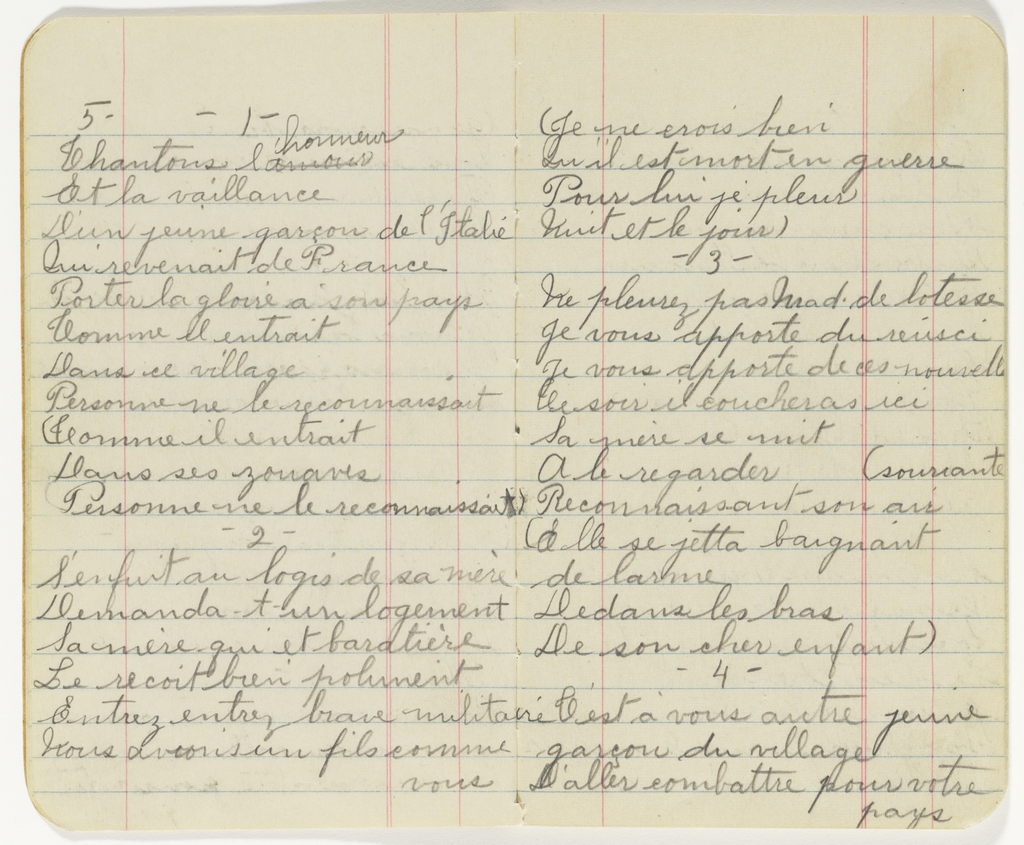 5-   - 1 -
Chantons l'honneur
Et la vaillance
D'un jeune garçon de l'Italie
Qui revenait de France
Porter la gloire a son pays
Comme il entrait
Dans ce village
Personne ne le reconnaissait
(Comme il entrait
Dans ses zouaves
Personne ne le reconnaissait)
- 2 -
S'enfuit au logis de sa mère
Demanda-t-un logement
Sa mère qui et
Le recoit bien poliment
Entrez entrez brave militaire
Nous avions un fils comme
vous
(Je ne crois bien
Qu'il est mort en guerre
Pour lui je pleur
Nuit et le jour)
- 3 -
Ne pleurez pas Mad. de lotesse
Je vous apporte du reüsci
Je vous apporte de ces nouvell
Ce soir il coucheras ici
Sa mère se mit
A le regarder (souriante
Reconnaissant son air
(Elle se jetta baignant
de larme
Dedans les bras
De son cher enfant)
- 4 -
C'est à vous autre jeune
garçon du village
D'aller combattre pour votre
pays